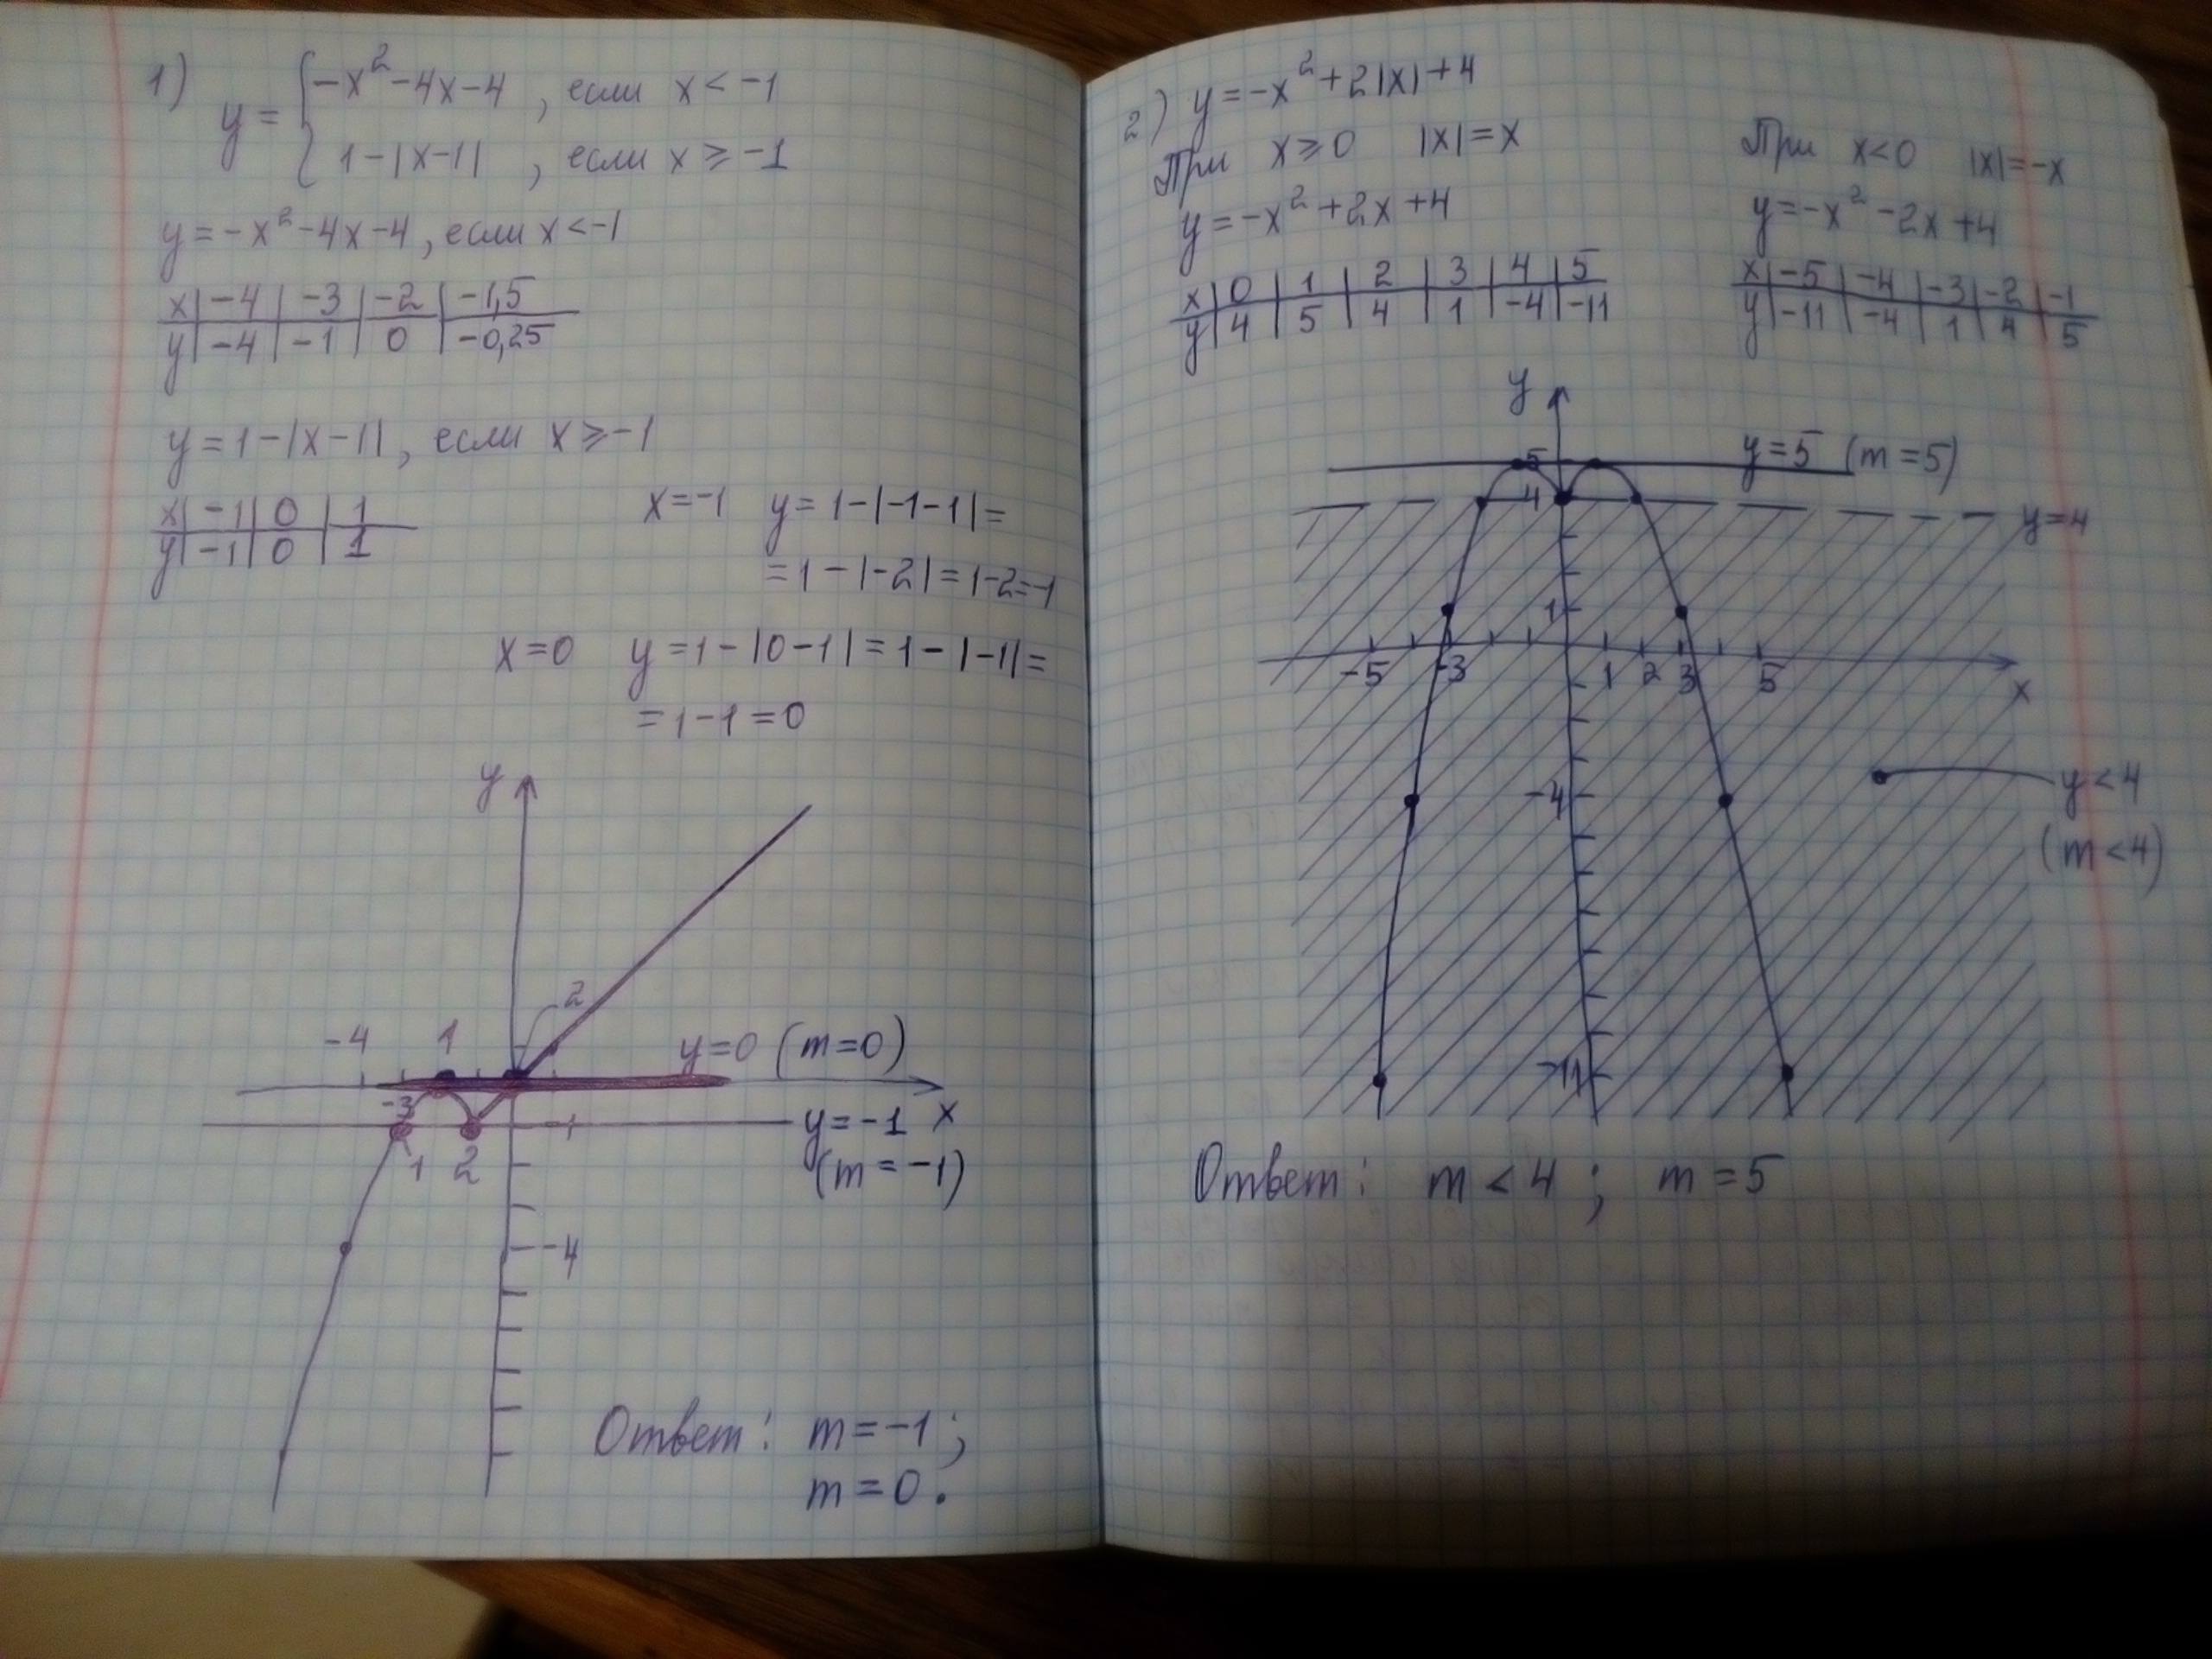 1)
y = { -x² - 4x - 4 , если x < -1
1 - |x - 1| , если x ≥ -1
y = -x² - 4x - 4, если x < -1
x | -4 | -3 | -2 | -1,5
y | -4 | -1 | 0 | -0,25
y = 1 - |x - 1|, если x ≥ -1
x | -1 | 0 | 1
y | -1 | 0 | 1
x = -1 y = 1 - |-1 - 1| =
= 1 - |-2| = 1 - 2 = -1
x = 0 y = 1 - |0 - 1| = 1 - |-1| =
= 1 - 1 = 0
y
2
-4 1 y = 0 (m = 0)
-3 x
-1 y = -1
1 2 (m = -1)
-4
Ответ: m = -1;
m = 0.
2) y = -x² + 2|x| + 4
При x ≥ 0 |x| = x
y = -x² + 2x + 4
x | 0 | 1 | 2 | 3 | 4 | 5
y | 4 | 5 | 4 | 1 | -4 | -11
При x < 0 |x| = -x
y = -x² - 2x + 4
x | -5 | -4 | -3 | -2 | -1
y | -11 | -4 | 1 | 4 | 5
y
5 y = 5 (m = 5)
4 y = 4
1
-5 -3 1 2 3 5 x
-4 y < 4
(m < 4)
-11
Ответ: m < 4 ; m = 5